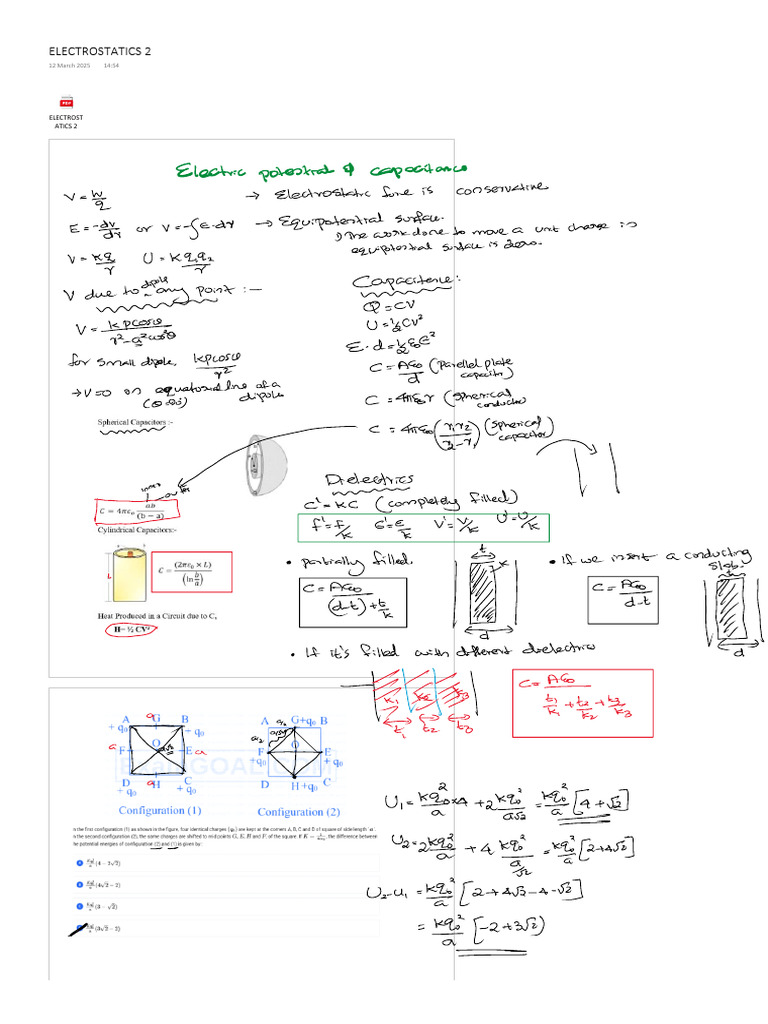 ELECTROSTATICS 2
12 March 2025 14:54
PDF
ELECTROST
ATICS 2
Electric potential & capacitance
V = W/q
→ Electrostatic force is conservative
E = -dv/dr or V = -∫E·dr
→ Equipotential surface.
↳ The work done to move a unit charge in
equipotential surface is zero.
V = kq/r U = kq₁q₂/r
V due to dipole any point :—
V = kpcosθ/(r²-a²cos²θ)
for small dipole, kpcosθ/r²
→ V=0 on equatorial line of a
dipole
Capacitence:
Q = CV
U = ½CV²
E·d = ½ε₀E²
C = Aε₀/d (Parellel plate
capacitor)
C = 4πε₀r (spherical
conductor)
C = 4πε₀(r₁r₂/(r₂-r₁)) (spherical
capacitor)
Spherical Capacitors :-
inner
outer
C = 4πε₀ ab/(b − a)
Cylindrical Capacitors:-
b
a
L
C = (2πε₀ × L)/(ln b/a)
Heat Produced in a Circuit due to C,
H= ½ CV²
Dielectrics
C' = KC (completely filled)
F' = F/K E' = E/K V' = V/K U' = U/K
• partially filled.
C = Aε₀/((d-t)+t/k)
t
K
d
• If we insert a conducting
slab.
C = Aε₀/(d-t)
t
d
• If it's filled with different dielectrics
K₁ K₂ K₃
t₁ t₂ t₃
C = Aε₀/(t₁/K₁ + t₂/K₂ + t₃/K₃)
A a G B
+ q₀ + q₀
a F O E a
D a H C
+ q₀ + q₀
Configuration (1)
A a/2 G+q₀ B
a/2 a/√2
F O E
+ q₀ + q₀
D H+q₀ C
Configuration (2)
In the first configuration (1) as shown in the figure, four identical charges (q₀) are kept at the corners A, B, C and D of square of side length 'a'.
In the second configuration (2), the same charges are shifted to mid points G, E, H and F, of the square. If K = 1/4πε₀, the difference between
the potential energies of configuration (2) and (1) is given by:
Kq₀²/a (4 − 2√2)
Kq₀²/a (4√2 − 2)
Kq₀²/a (3 − √2)
Kq₀²/a (3√2 − 2)
U₁ = kq₀²/a ×4 + 2kq₀²/a√2 = kq₀²/a [4+√2]
U₂ = 2kq₀²/a + 4 kq₀²/(a/√2) = kq₀²/a [2+4√2]
U₂-U₁ = kq₀²/a [2+4√2-4-√2]
= kq₀²/a [-2+3√2)